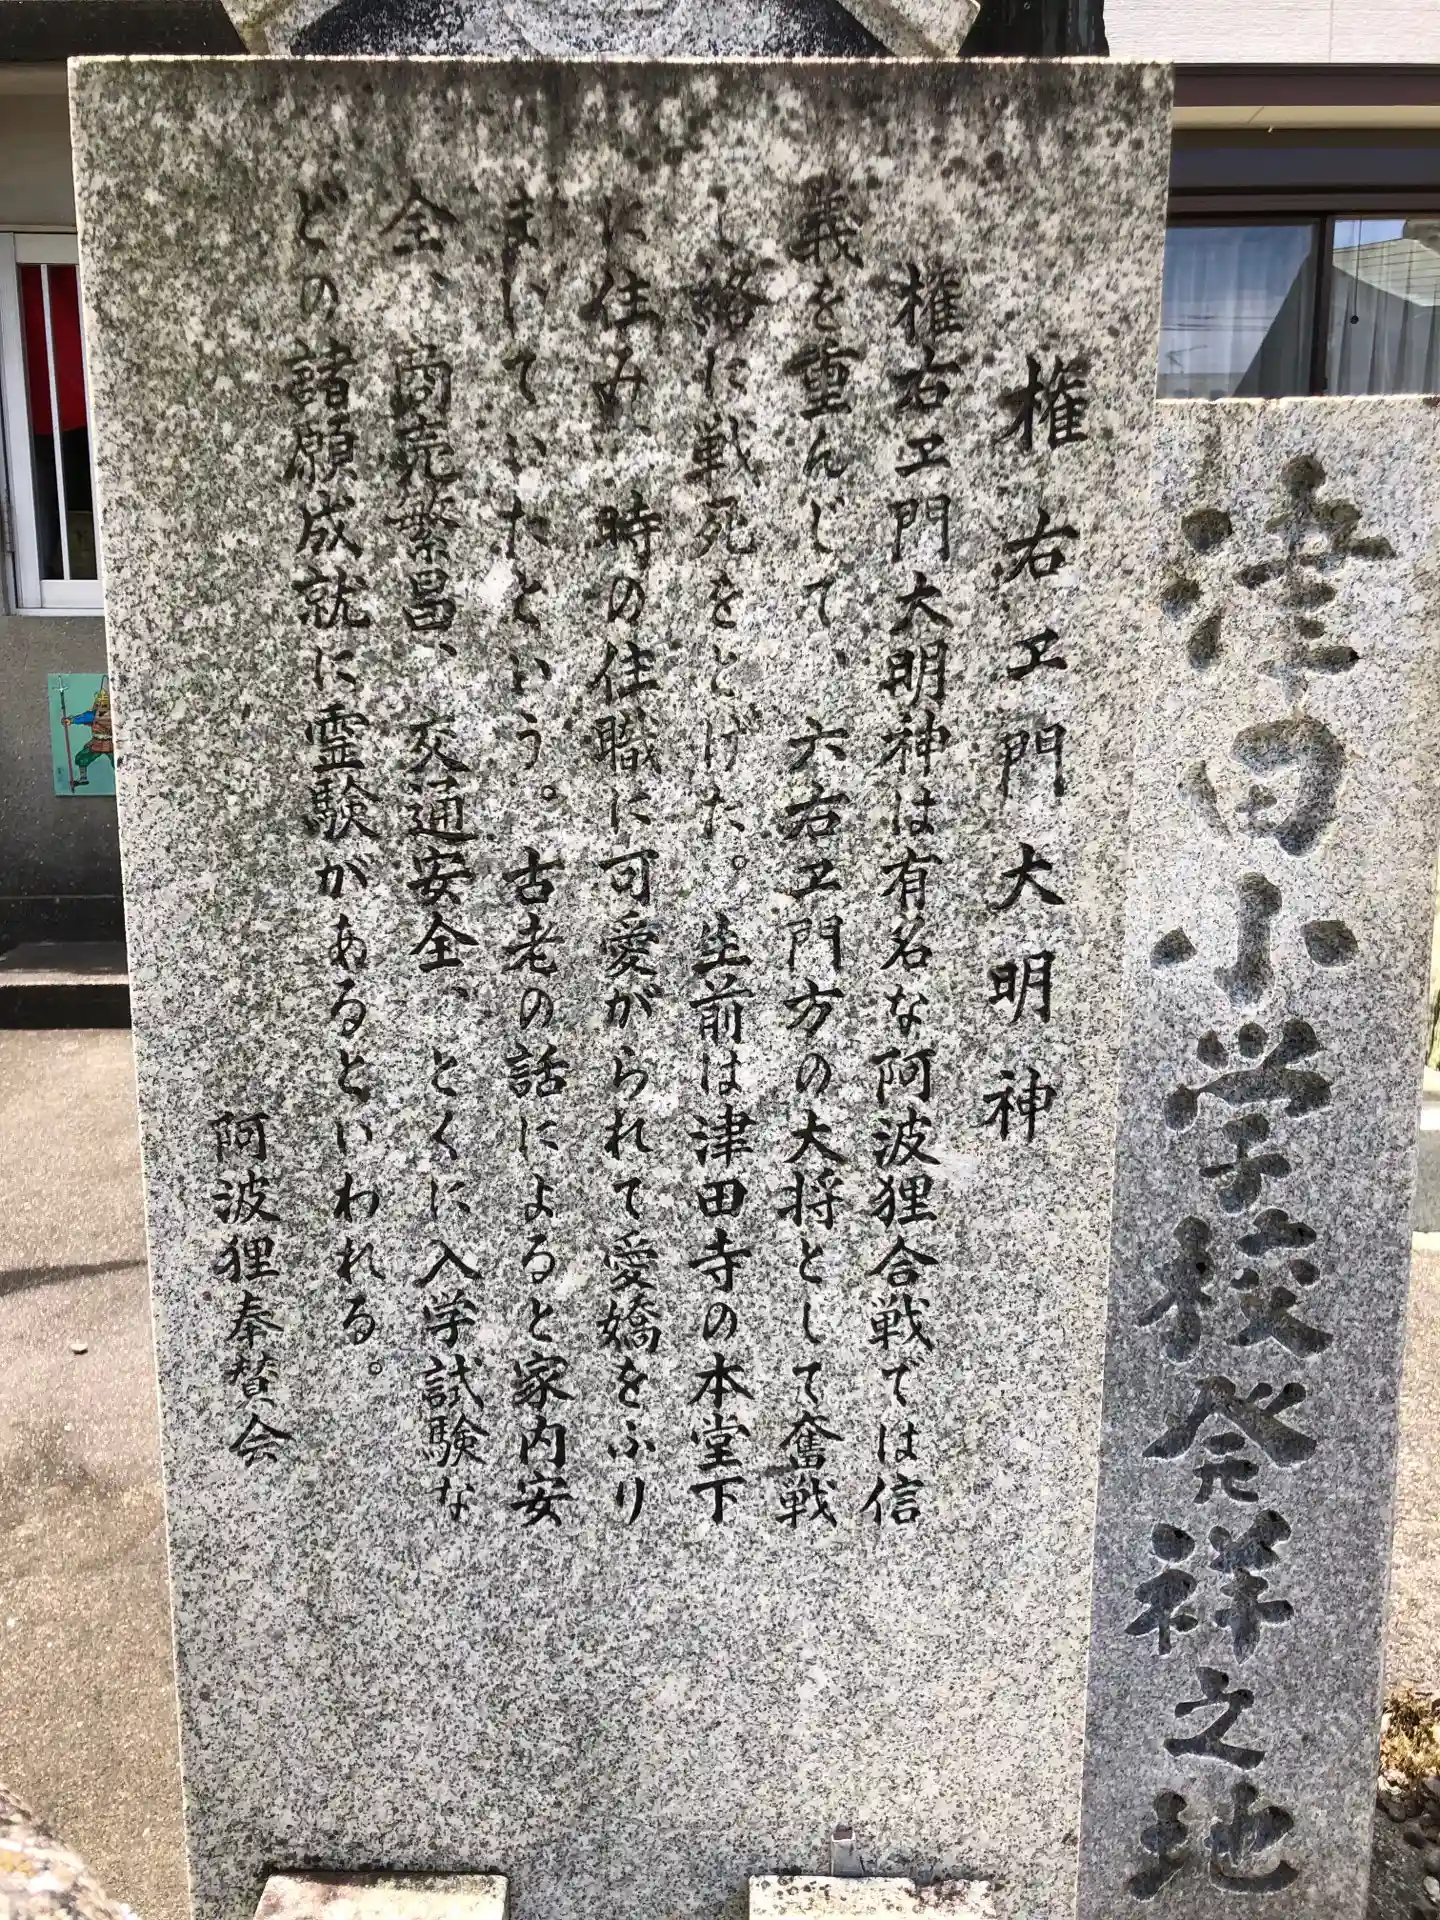 津田小学校発祥之地
権右ヱ門大明神
権右ヱ門大明神は有名な阿波狸合戦では信
義を重んじて、六右ヱ門方の大将として奮戦
し路に戦死をとげた。生前は津田寺の本堂下
に住み、時の住職に可愛がられて愛嬌をふり
まいていたという。古老の話によると家内安
全、商売繁昌、交通安全、とくに入学試験な
どの諸願成就に霊験があるといわれる。
阿波狸奉賛会